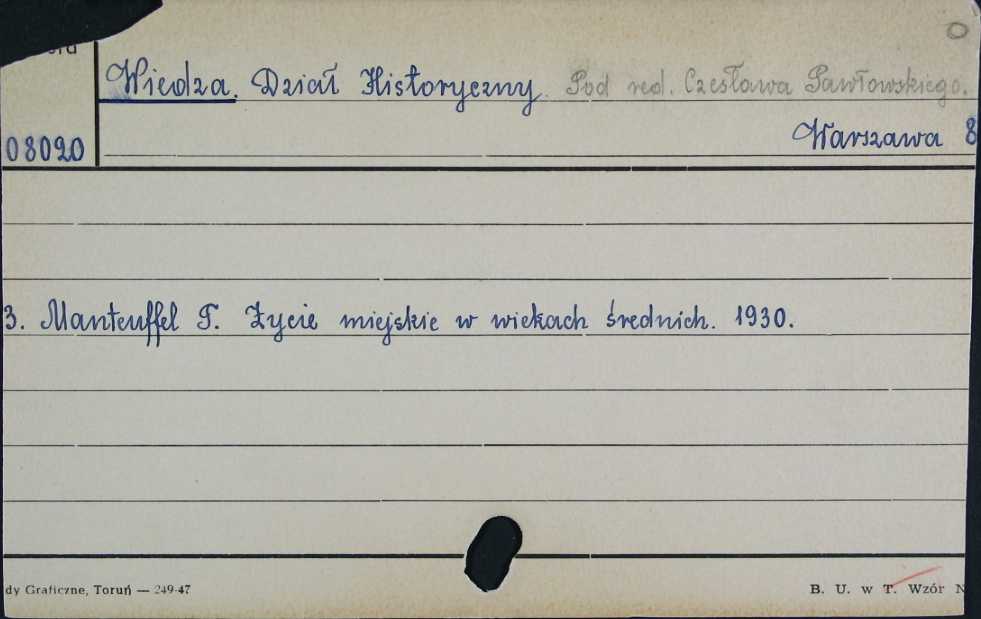 Wiedza. Dział Historyczny. Pod red. Czesława Pawłowskiego.
08020
Warszawa 8
3. Manteuffel T. Życie miejskie w wiekach średnich. 1930.
dy Graficzne, Toruń — 249-47
B. U. w T. Wzór N